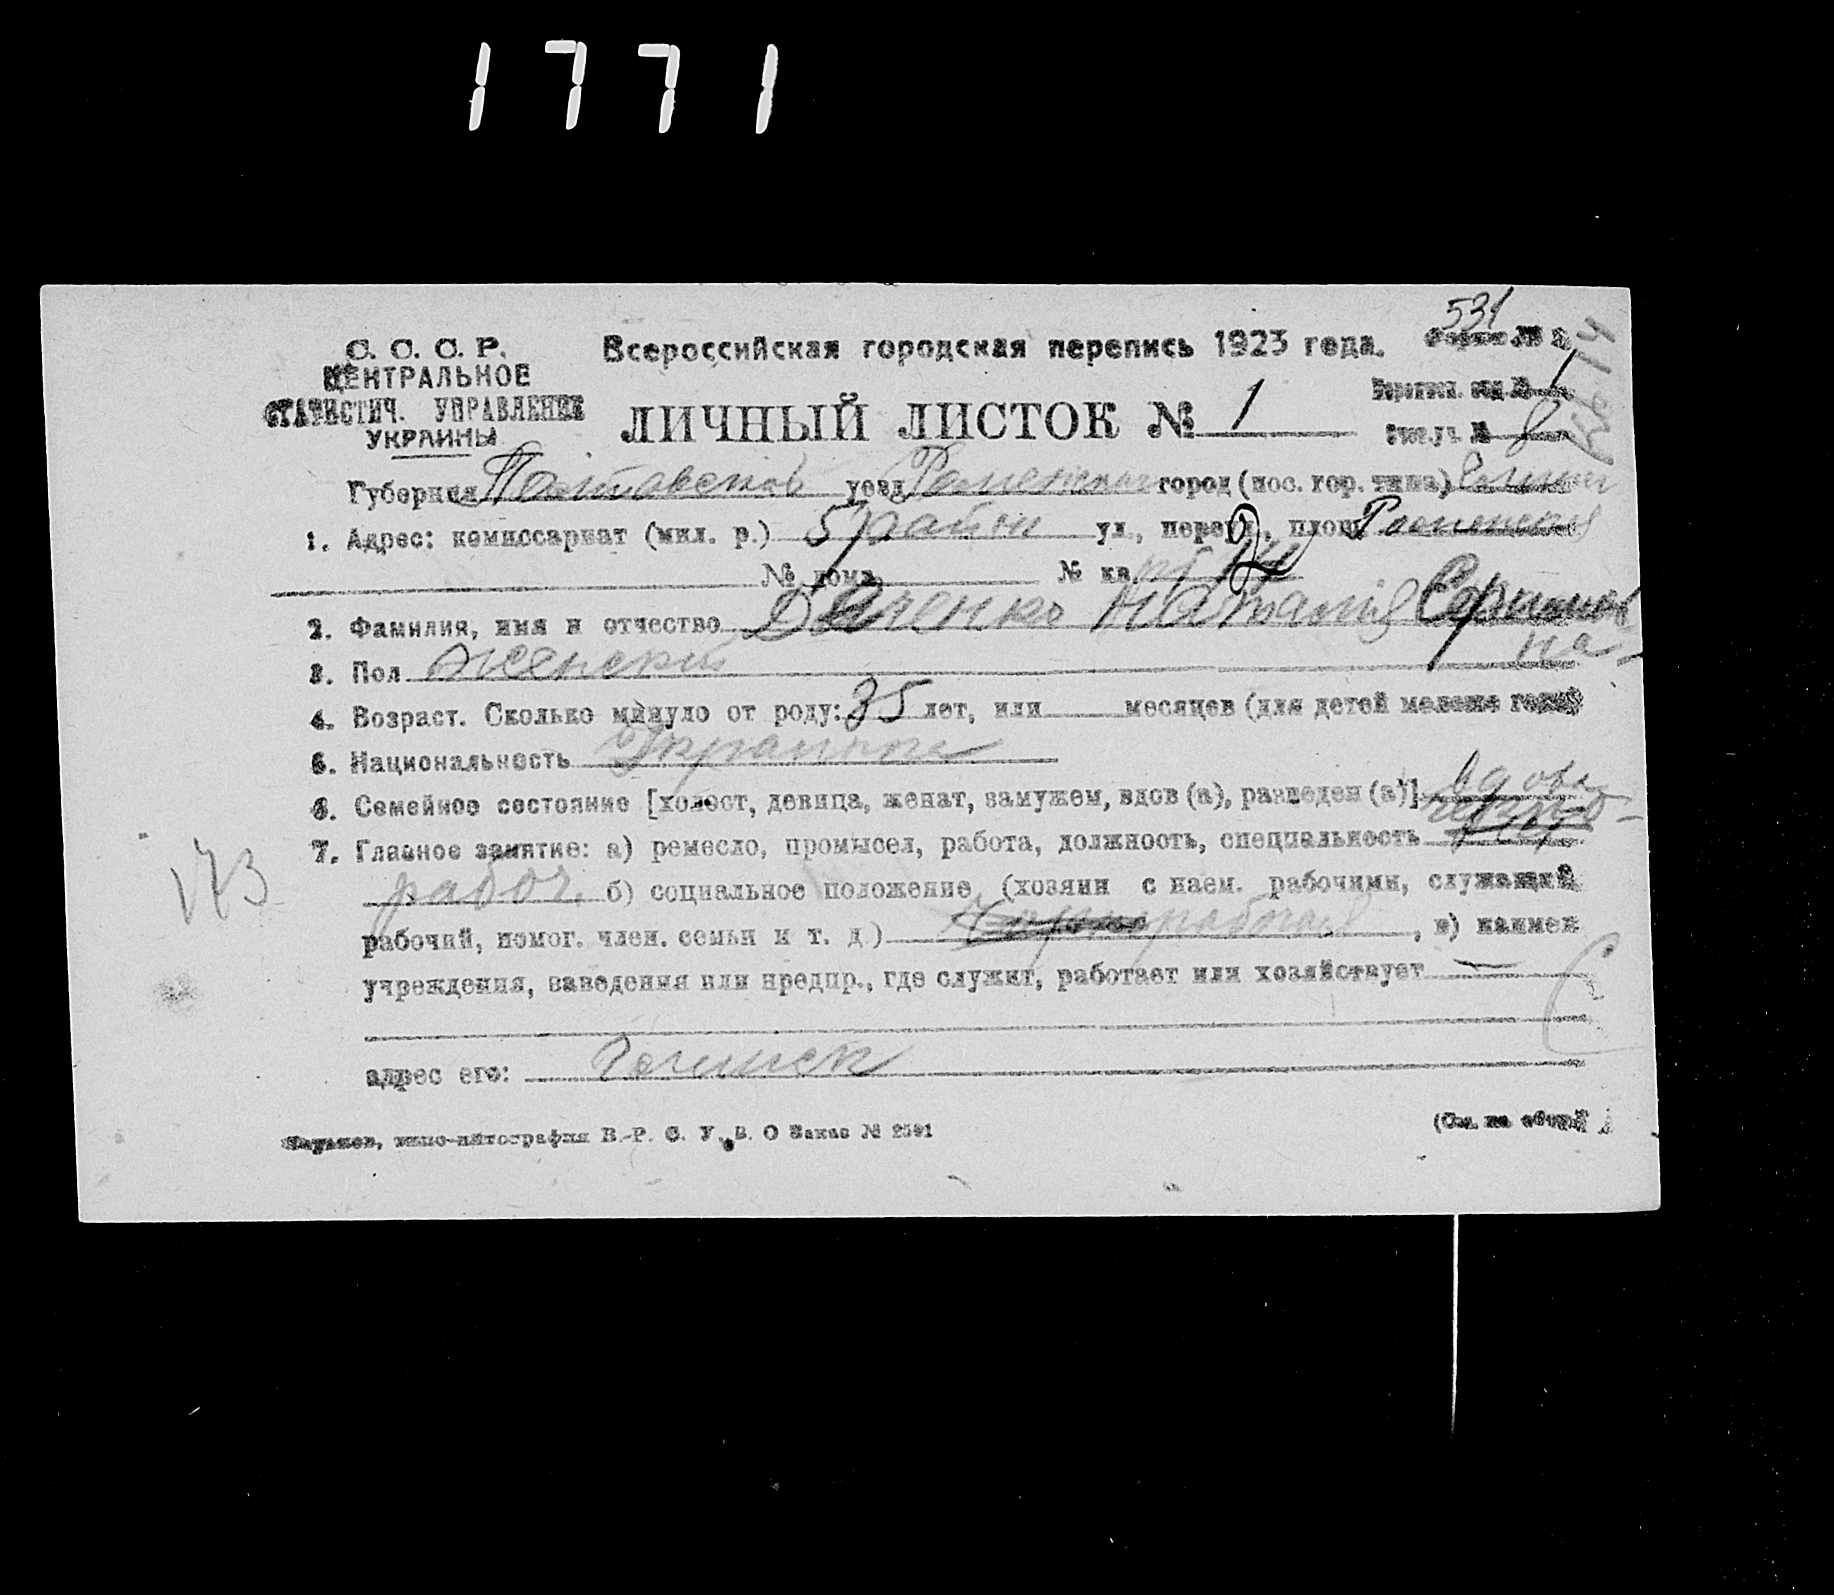 1771
531
С. С. С. Р. Всероссийская городская перепись 1923 года. Форма № 2.
ЦЕНТРАЛЬНОЕ
СТАТИСТИЧ. УПРАВЛЕНИЕ
УКРАИНЫ
ЛИЧНЫЙ ЛИСТОК № 1
Переписн. отд. № 1
Счет. уч. № 8
Губерния Полтавская уезд Роменский город (пос. гор. типа)
1. Адрес: комиссариат (мил. р.) 5 район ул., переул., площ. Роменская
№ дома № кв.
2. Фамилия, имя и отчество Дяченко Наталия
на
3. Пол Женский
4. Возраст. Сколько минуло от роду: 35 лет, или месяцев (для детей моложе года)
5. Национальность Украинка
6. Семейное состояние [холост, девица, женат, замужем, вдов (а), разведен (а)] вдова
7. Главное занятие: а) ремесло, промысел, работа, должность, специальность черно-
173
рабоч. б) социальное положение (хозяин с наем. рабочими, служащий
рабочий, помог. член. семьи и т. д.) Чернорабочая, в) наимен
учреждения, заведения или предпр., где служит, работает или хозяйствует —
адрес его:
Харьков, типо-литография В.-Р. С. У. В. О Заказ № 2591 (См. на обор.)